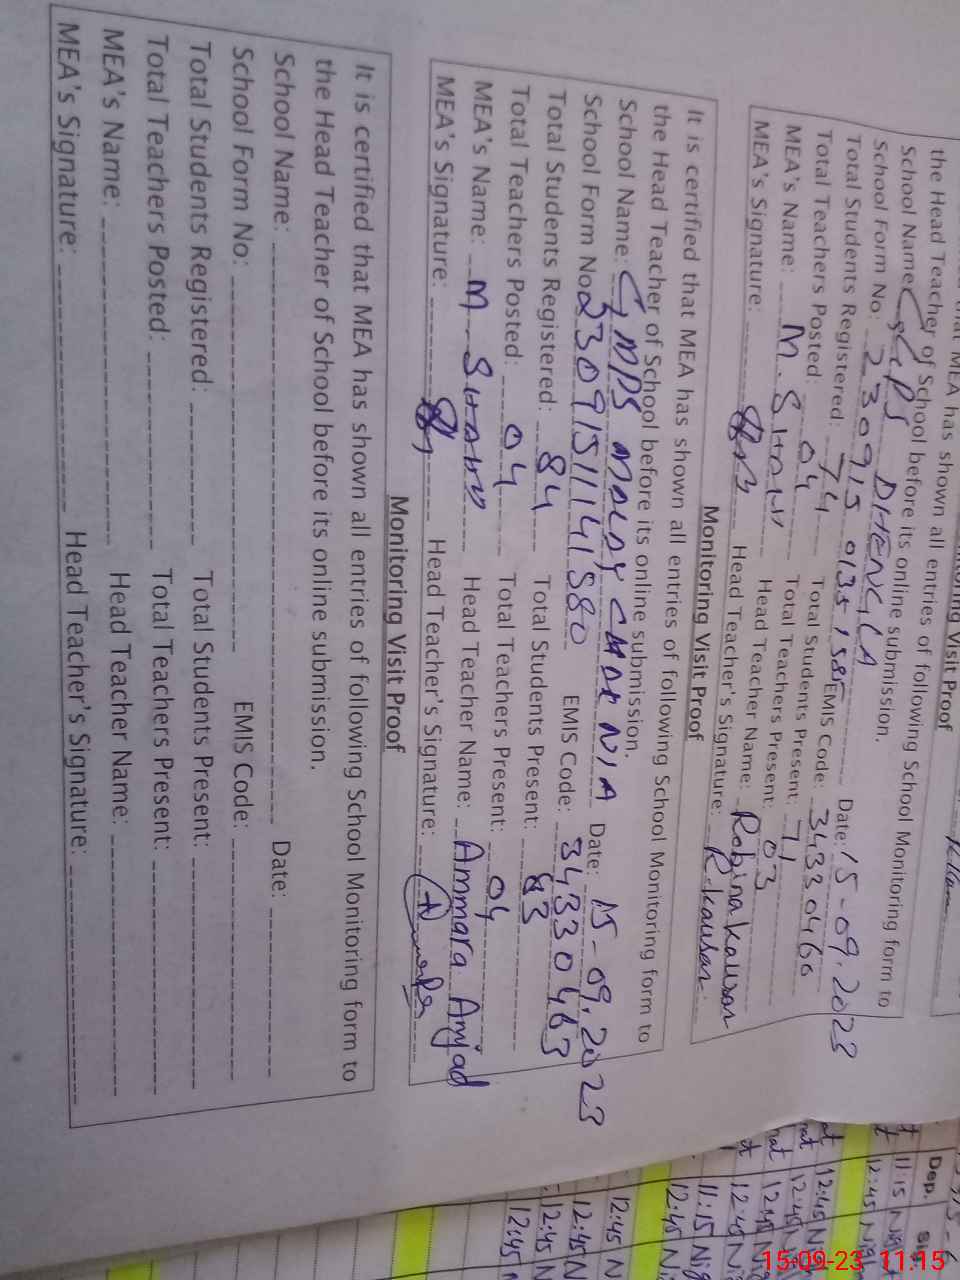 that MEA has shown all entries of following School Monitoring form to
the Head Teacher of School before its online submission.
School Name: GGPS DHANGLA Date: 15-09.2023
School Form No: 230915 0135 1585 EMIS Code: 34330466
Total Students Registered: 74 Total Students Present: 71
Total Teachers Posted: 04 Total Teachers Present: 03
MEA's Name: M. Head Teacher Name: Robina kausar
MEA's Signature: Head Teacher's Signature: R.kausar
Monitoring Visit Proof
It is certified that MEA has shown all entries of following School Monitoring form to
the Head Teacher of School before its online submission.
School Name: GMPS Date: 15-09.2023
School Form No: 230915111141580 EMIS Code: 34330463
Total Students Registered: 84 Total Students Present: 83
Total Teachers Posted: 04 Total Teachers Present: 04
MEA's Name: M Head Teacher Name: Ammara Amjad
MEA's Signature: Head Teacher's Signature:
Monitoring Visit Proof
It is certified that MEA has shown all entries of following School Monitoring form to
the Head Teacher of School before its online submission.
School Name: Date:
School Form No: EMIS Code:
Total Students Registered: Total Students Present:
Total Teachers Posted: Total Teachers Present:
MEA's Name: Head Teacher Name:
MEA's Signature: Head Teacher's Signature:
Dep.
11:15
12:45
12:45
12:45
12:45
12:45
11:15
12:45
12:45
12:45
12:45
12:45
15-09-23 11:15